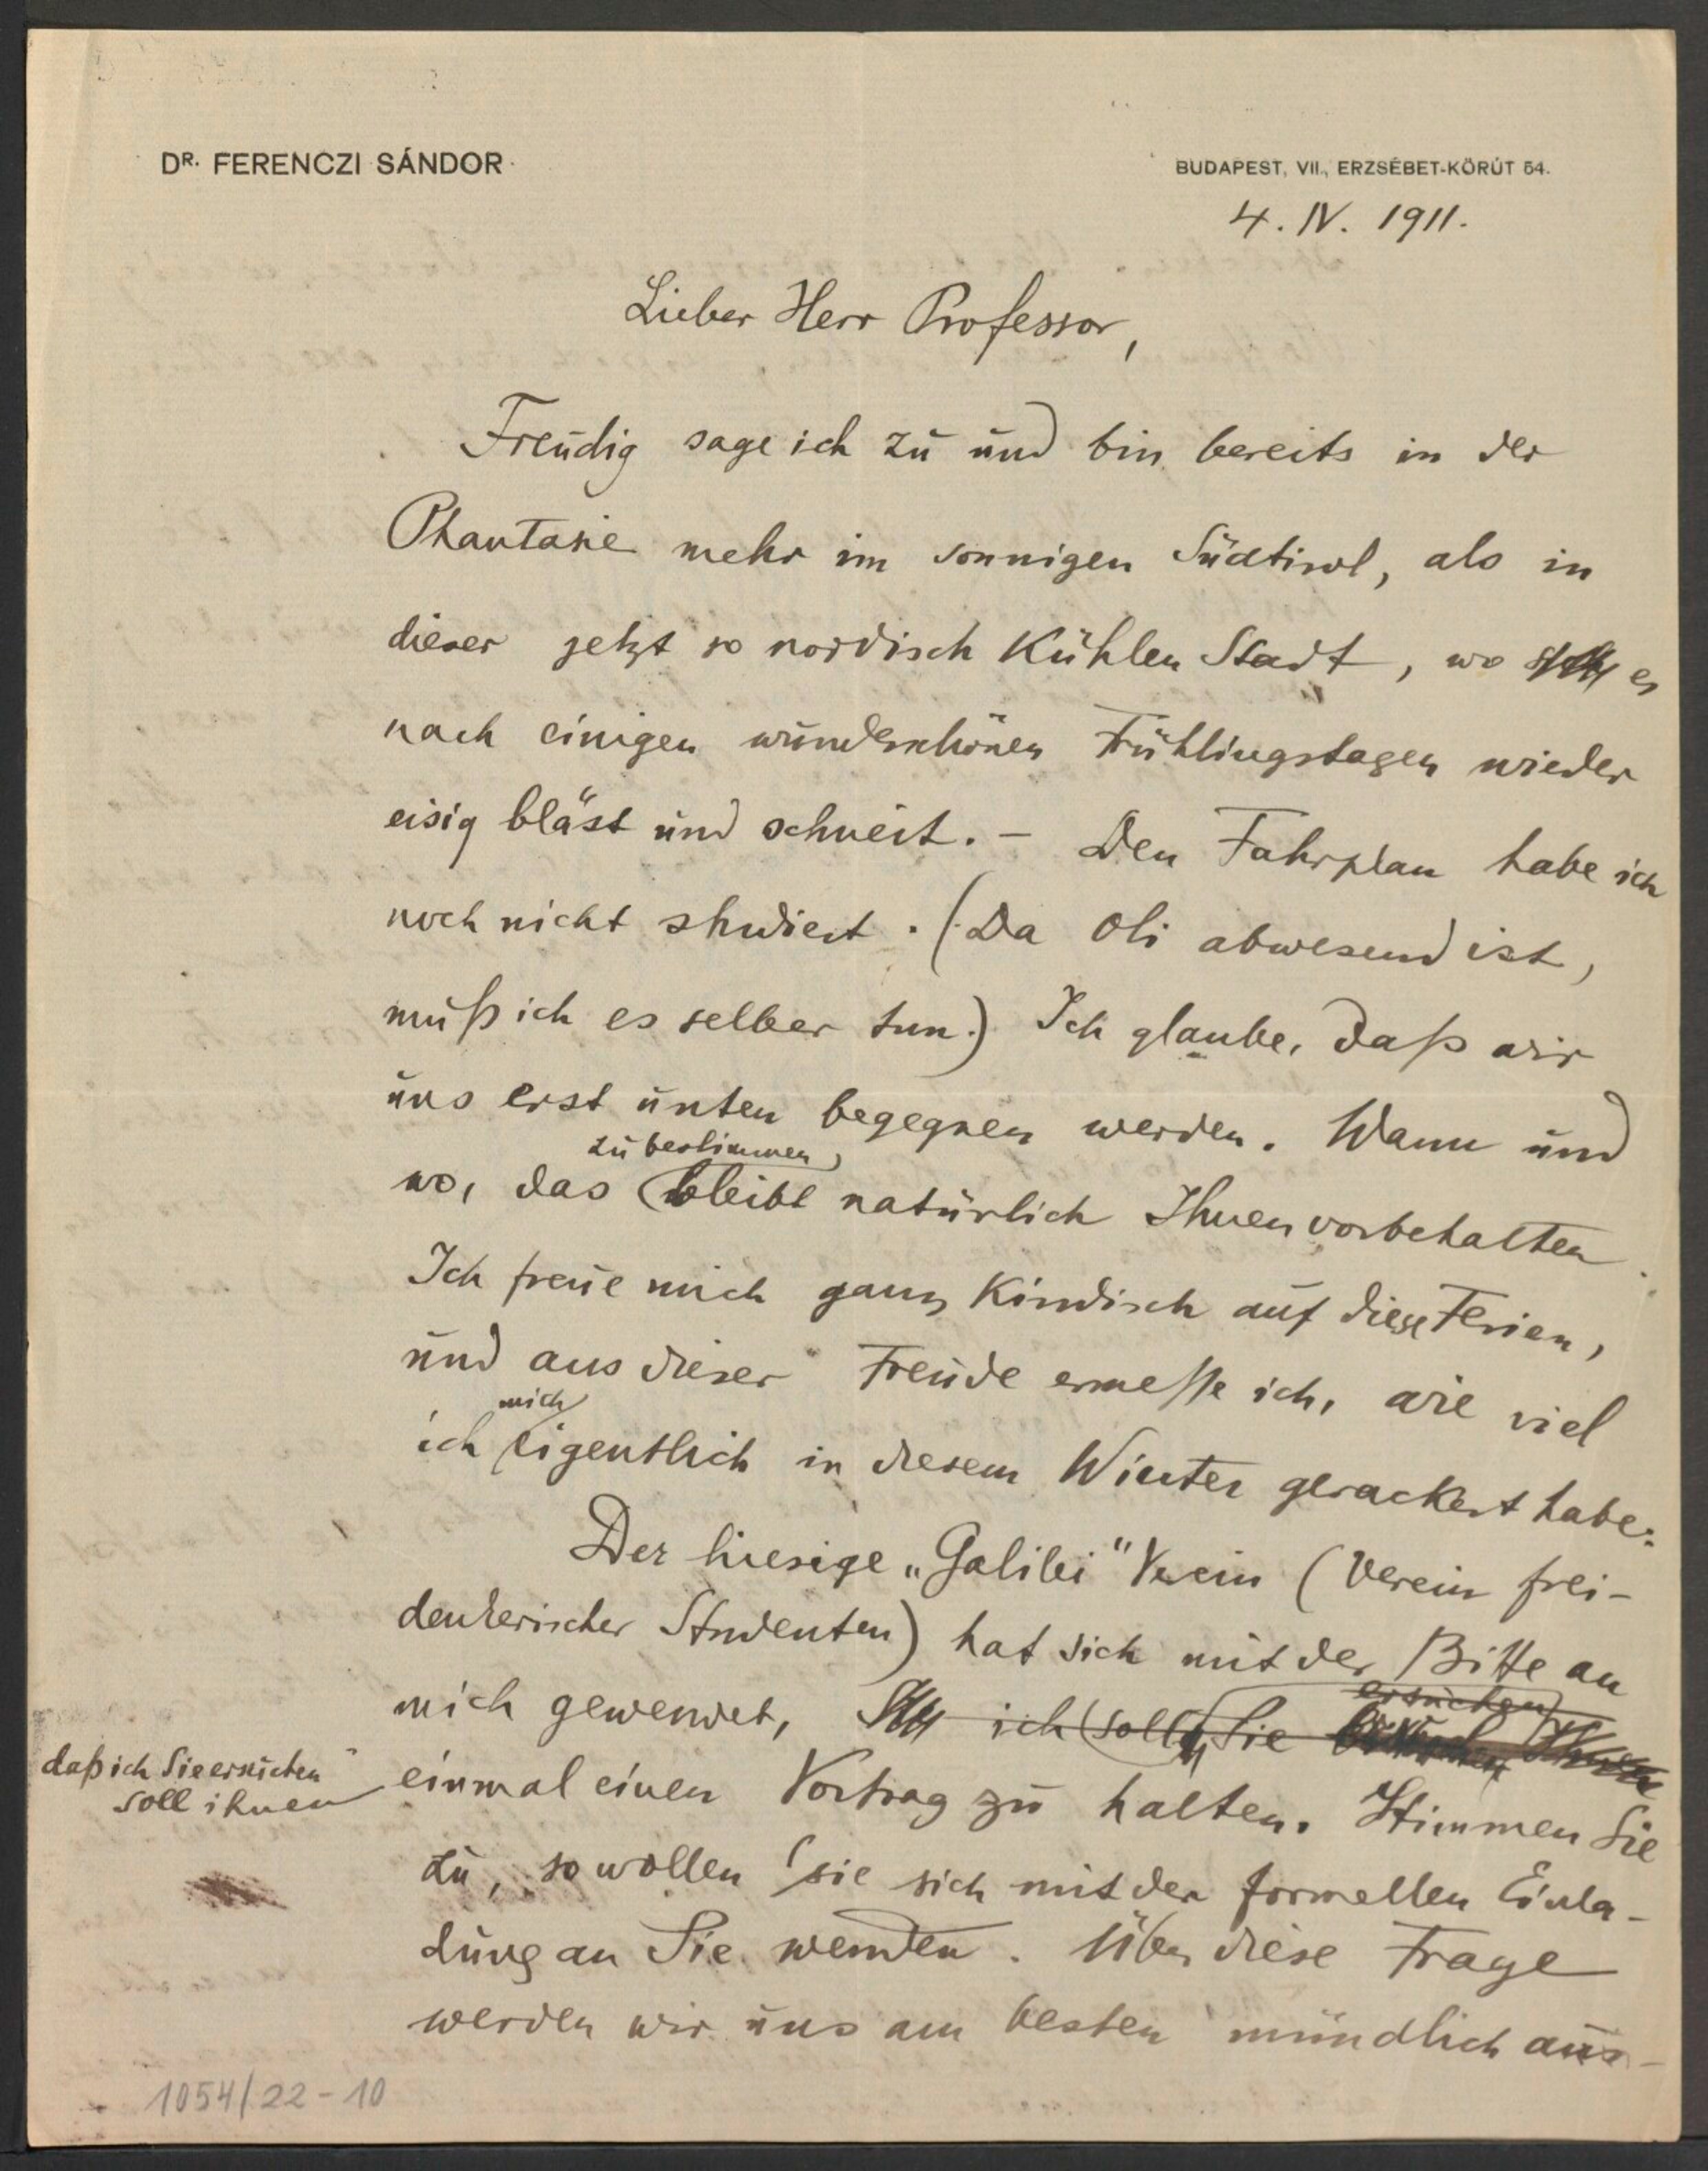 DR. FERENCZI SÁNDOR
BUDAPEST, VII., ERZSÉBET-KÖRÚT 54.
4. IV. 1911.
Lieber Herr Professor,
Freudig sage ich zu und bin bereits in der
Phantasie mehr im sonnigen Südtirol, als in
dieser jetzt so nordisch kühlen Stadt, wo es
nach einigen wunderschönen Frühlingstagen wieder
eisig bläst und schneit. – Den Fahrplan habe ich
noch nicht studiert. (Da Oli abwesend ist,
muß ich es selber tun.) Ich glaube, daß wir
uns erst unten begegnen werden. Wann und
zu bestimmen
wo, das bleibt natürlich Ihnen vorbehalten.
Ich freue mich ganz kindisch auf diese Ferien,
und aus dieser Freude ermesse ich, wie viel
mich
ich eigentlich in diesem Winter gerackert habe.
Der hiesige „Galilei" Verein (Verein frei-
denkerischer Studenten) hat sich mit der Bitte an
ersuchen
mich gewendet, ich soll Sie
daß ich Sie ersuchen
soll ihnen
einmal einen Vortrag zu halten. Stimmen Sie
zu, so wollen sie sich mit der formellen Einla-
dung an Sie wenden. Über diese Frage
werden wir uns am besten mündlich aus-
1054/22-10